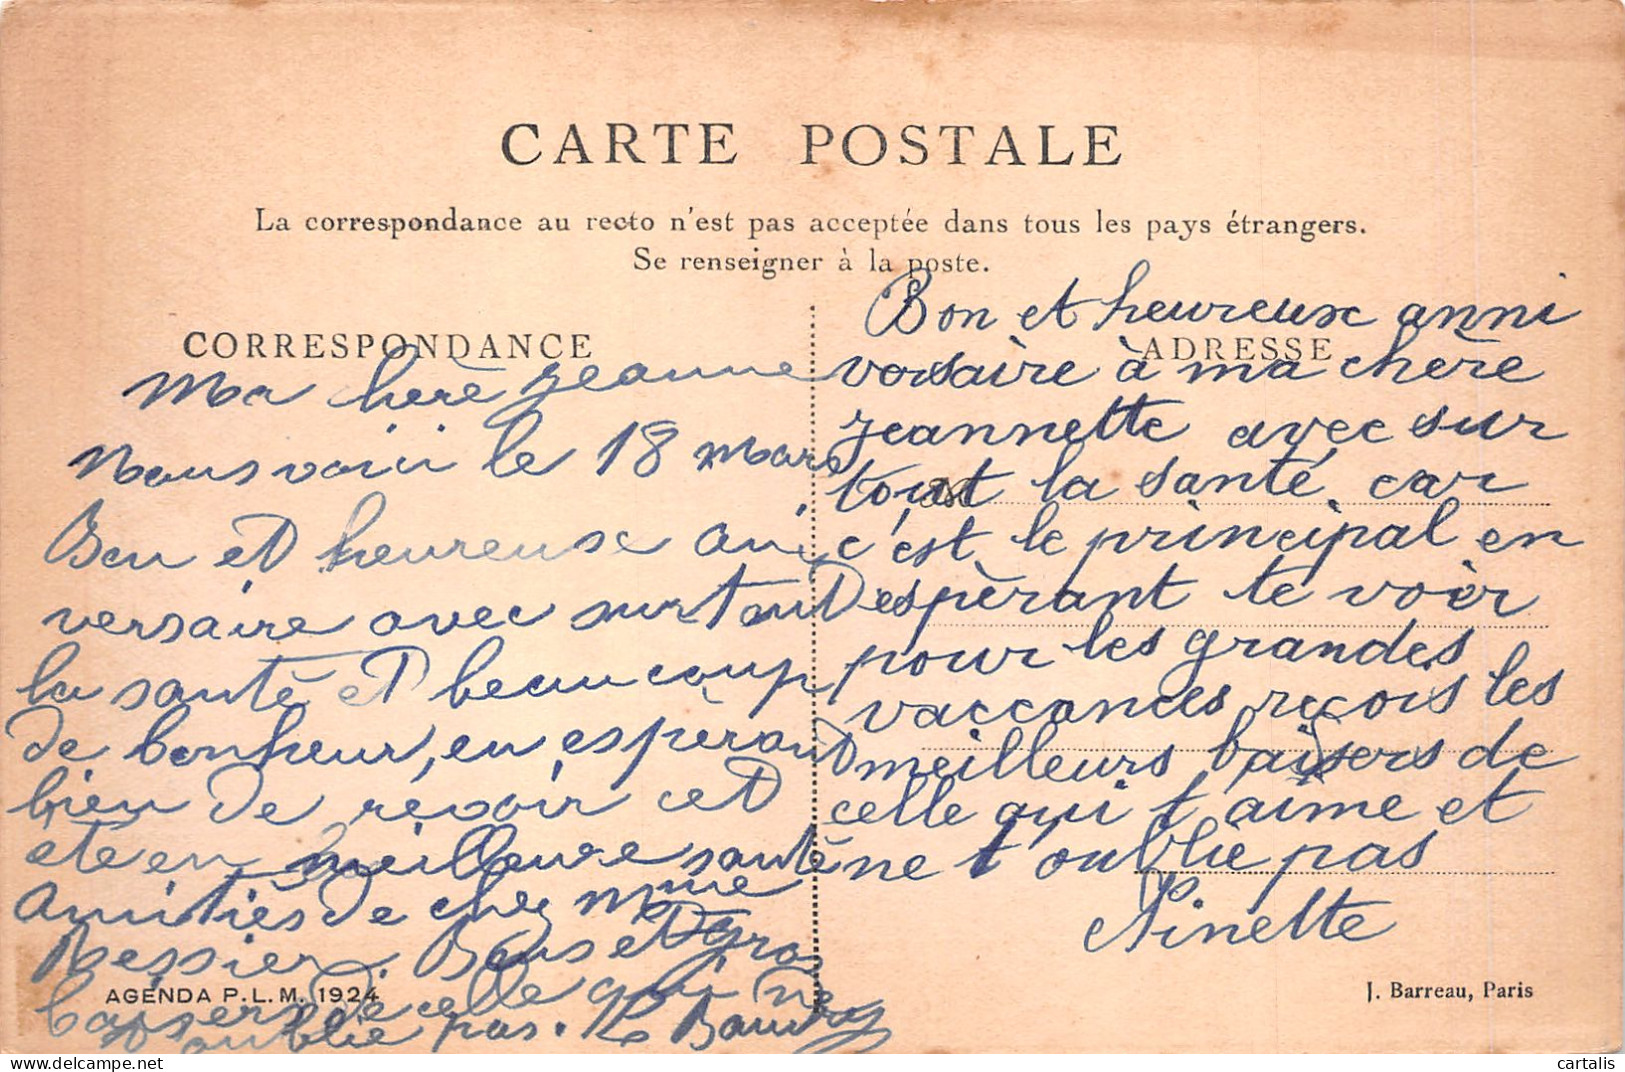 CARTE POSTALE
La correspondance au recto n'est pas acceptée dans tous les pays étrangers.
Se renseigner à la poste.
CORRESPONDANCE
Ma chère Jeanne
Nous voici le 18 mars
Bon et heureuse anni
versaire avec surtout
la santé et beaucoup
de bonheur, en espèrant
bien de revoir cet
été en meilleure santé
Amitiés de chez Mme
Bessier. Bons et gros
baisers de celle qui ne
oublie pas.
AGENDA P.L.M. 1924
ADRESSE
Bon et heureuse anni
versaire à ma chère
Jeannette avec sur
tout la santé car
c'est le principal en
espèrant te voir
pour les grandes
vaccances reçois les
meilleurs baisers de
celle qui t'aime et
ne t'oublie pas
Ninette
J. Barreau, Paris
cartalis